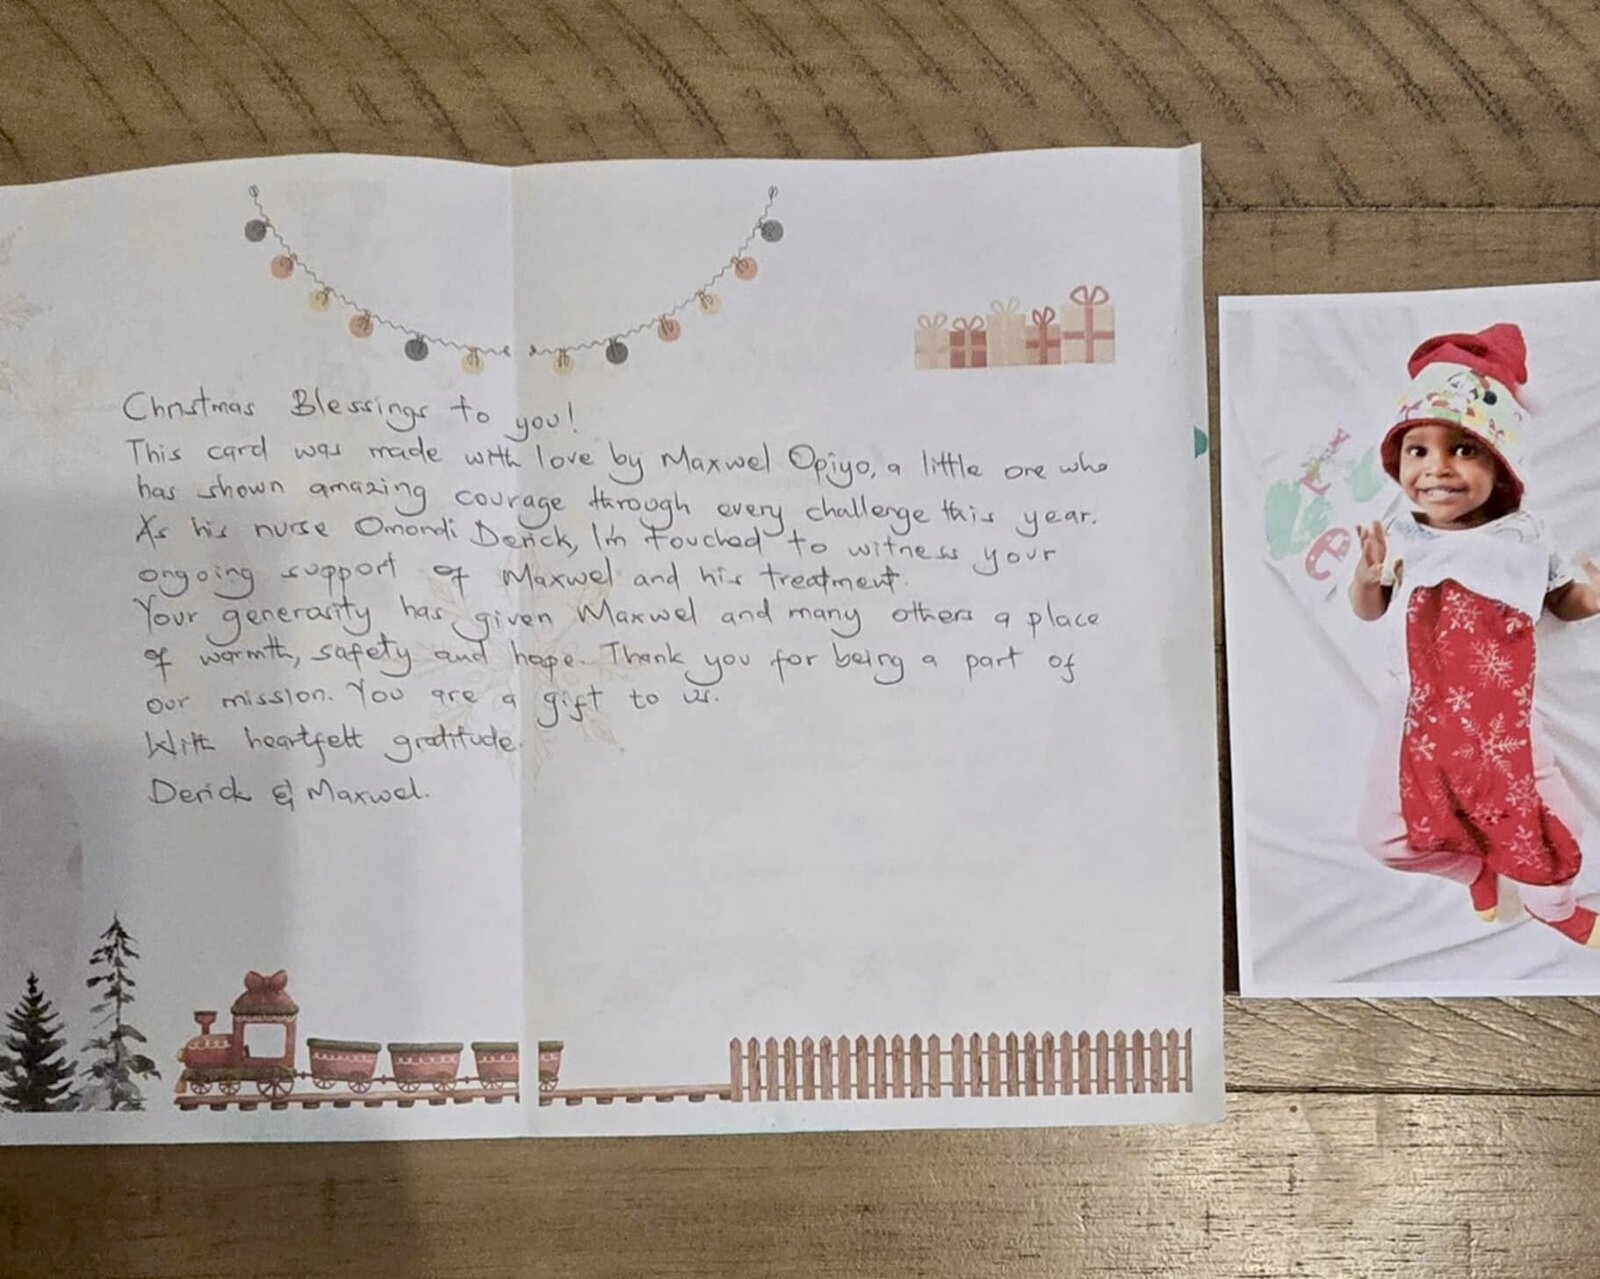 Christmas Blessings to you!
This card was made with love by Maxwel Opiyo, a little one who
has shown amazing courage through every challenge this year.
As his nurse Omondi Derick, I'm touched to witness your
ongoing support of Maxwel and his treatment.
Your generosity has given Maxwel and many others a place
of warmth, safety and hope. Thank you for being a part of
our mission. You are a gift to us.
With heartfelt gratitude.
Derick & Maxwel.